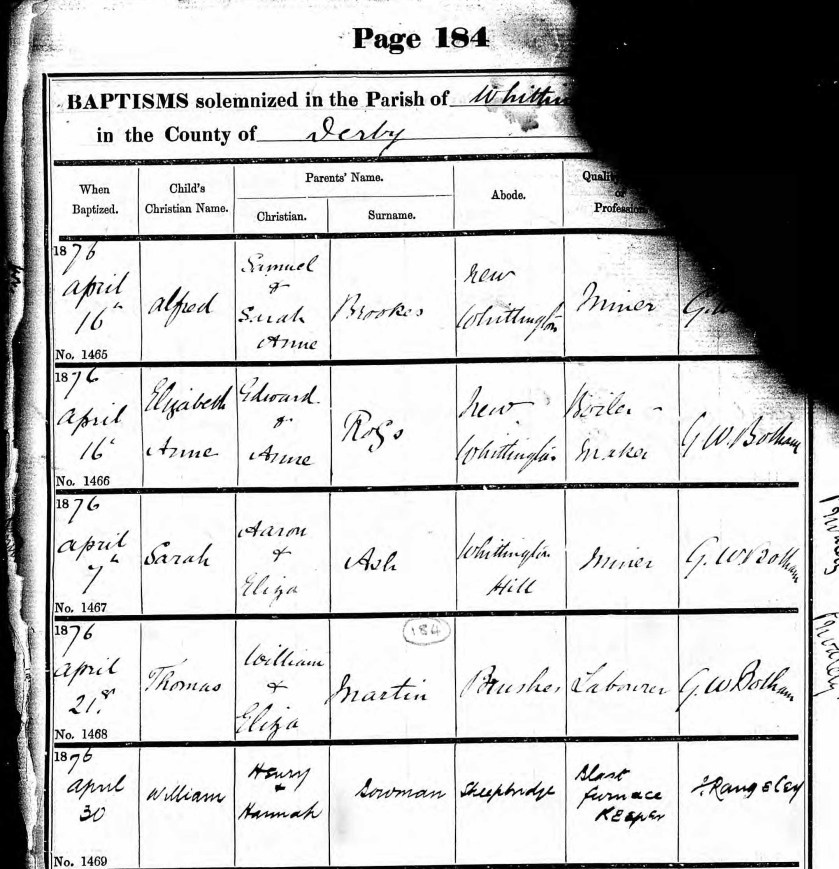 Page 184
BAPTISMS solemnized in the Parish of
in the County of Derby
When
Baptized.
Child's
Christian Name.
Parents' Name.
Christian.
Surname.
Abode.
or
Profession
1876
April
16th
No. 1465
Alfred
Samuel
&
Sarah
Anne
Brookes
New
Whittington
Miner
1876
April
16th
No. 1466
Elizabeth
Anne
Edward
&
Anne
New
Whittington
Boiler -
Maker
G.W. Botham
1876
April
7th
No. 1467
Sarah
Aaron
&
Eliza
Ash
Whittington
Hill
Miner
G.W Botham
184
1876
April
21st
No. 1468
Thomas
William
&
Eliza
Martin
Brushes
Labourer
G W Botham
1876
April
30
No. 1469
William
Henry
&
Hannah
Bowman
Sheepbridge
Blast
furnace
Keeper